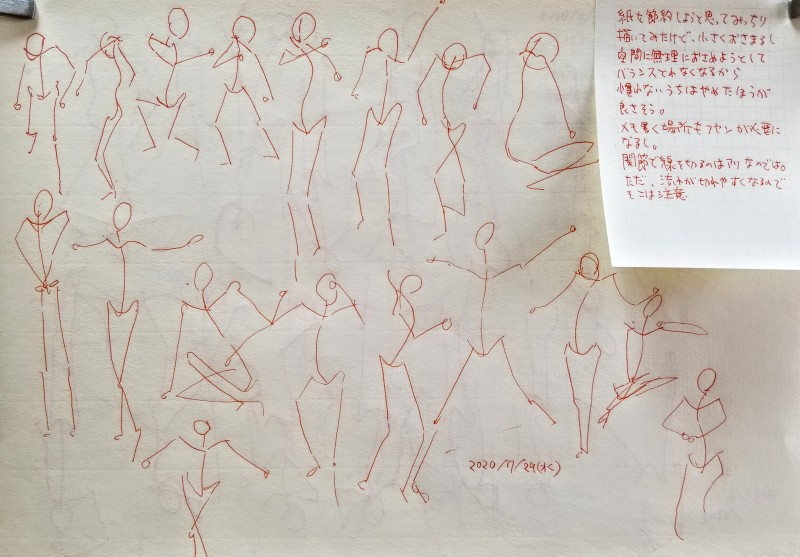 紙を節約しようと思ってみっちり
描いてみたけど、小さくおさまるし
空間に無理におさめようとして
バランスとれなくなるから
慣れないうちはやめたほうが
良さそう。
メモ書く場所もフセンが必要に
なるし。
関節で線を切るのはアリなのでは。
ただ、流れが切れやすくなるので
そこは注意
2020/7/29(水)